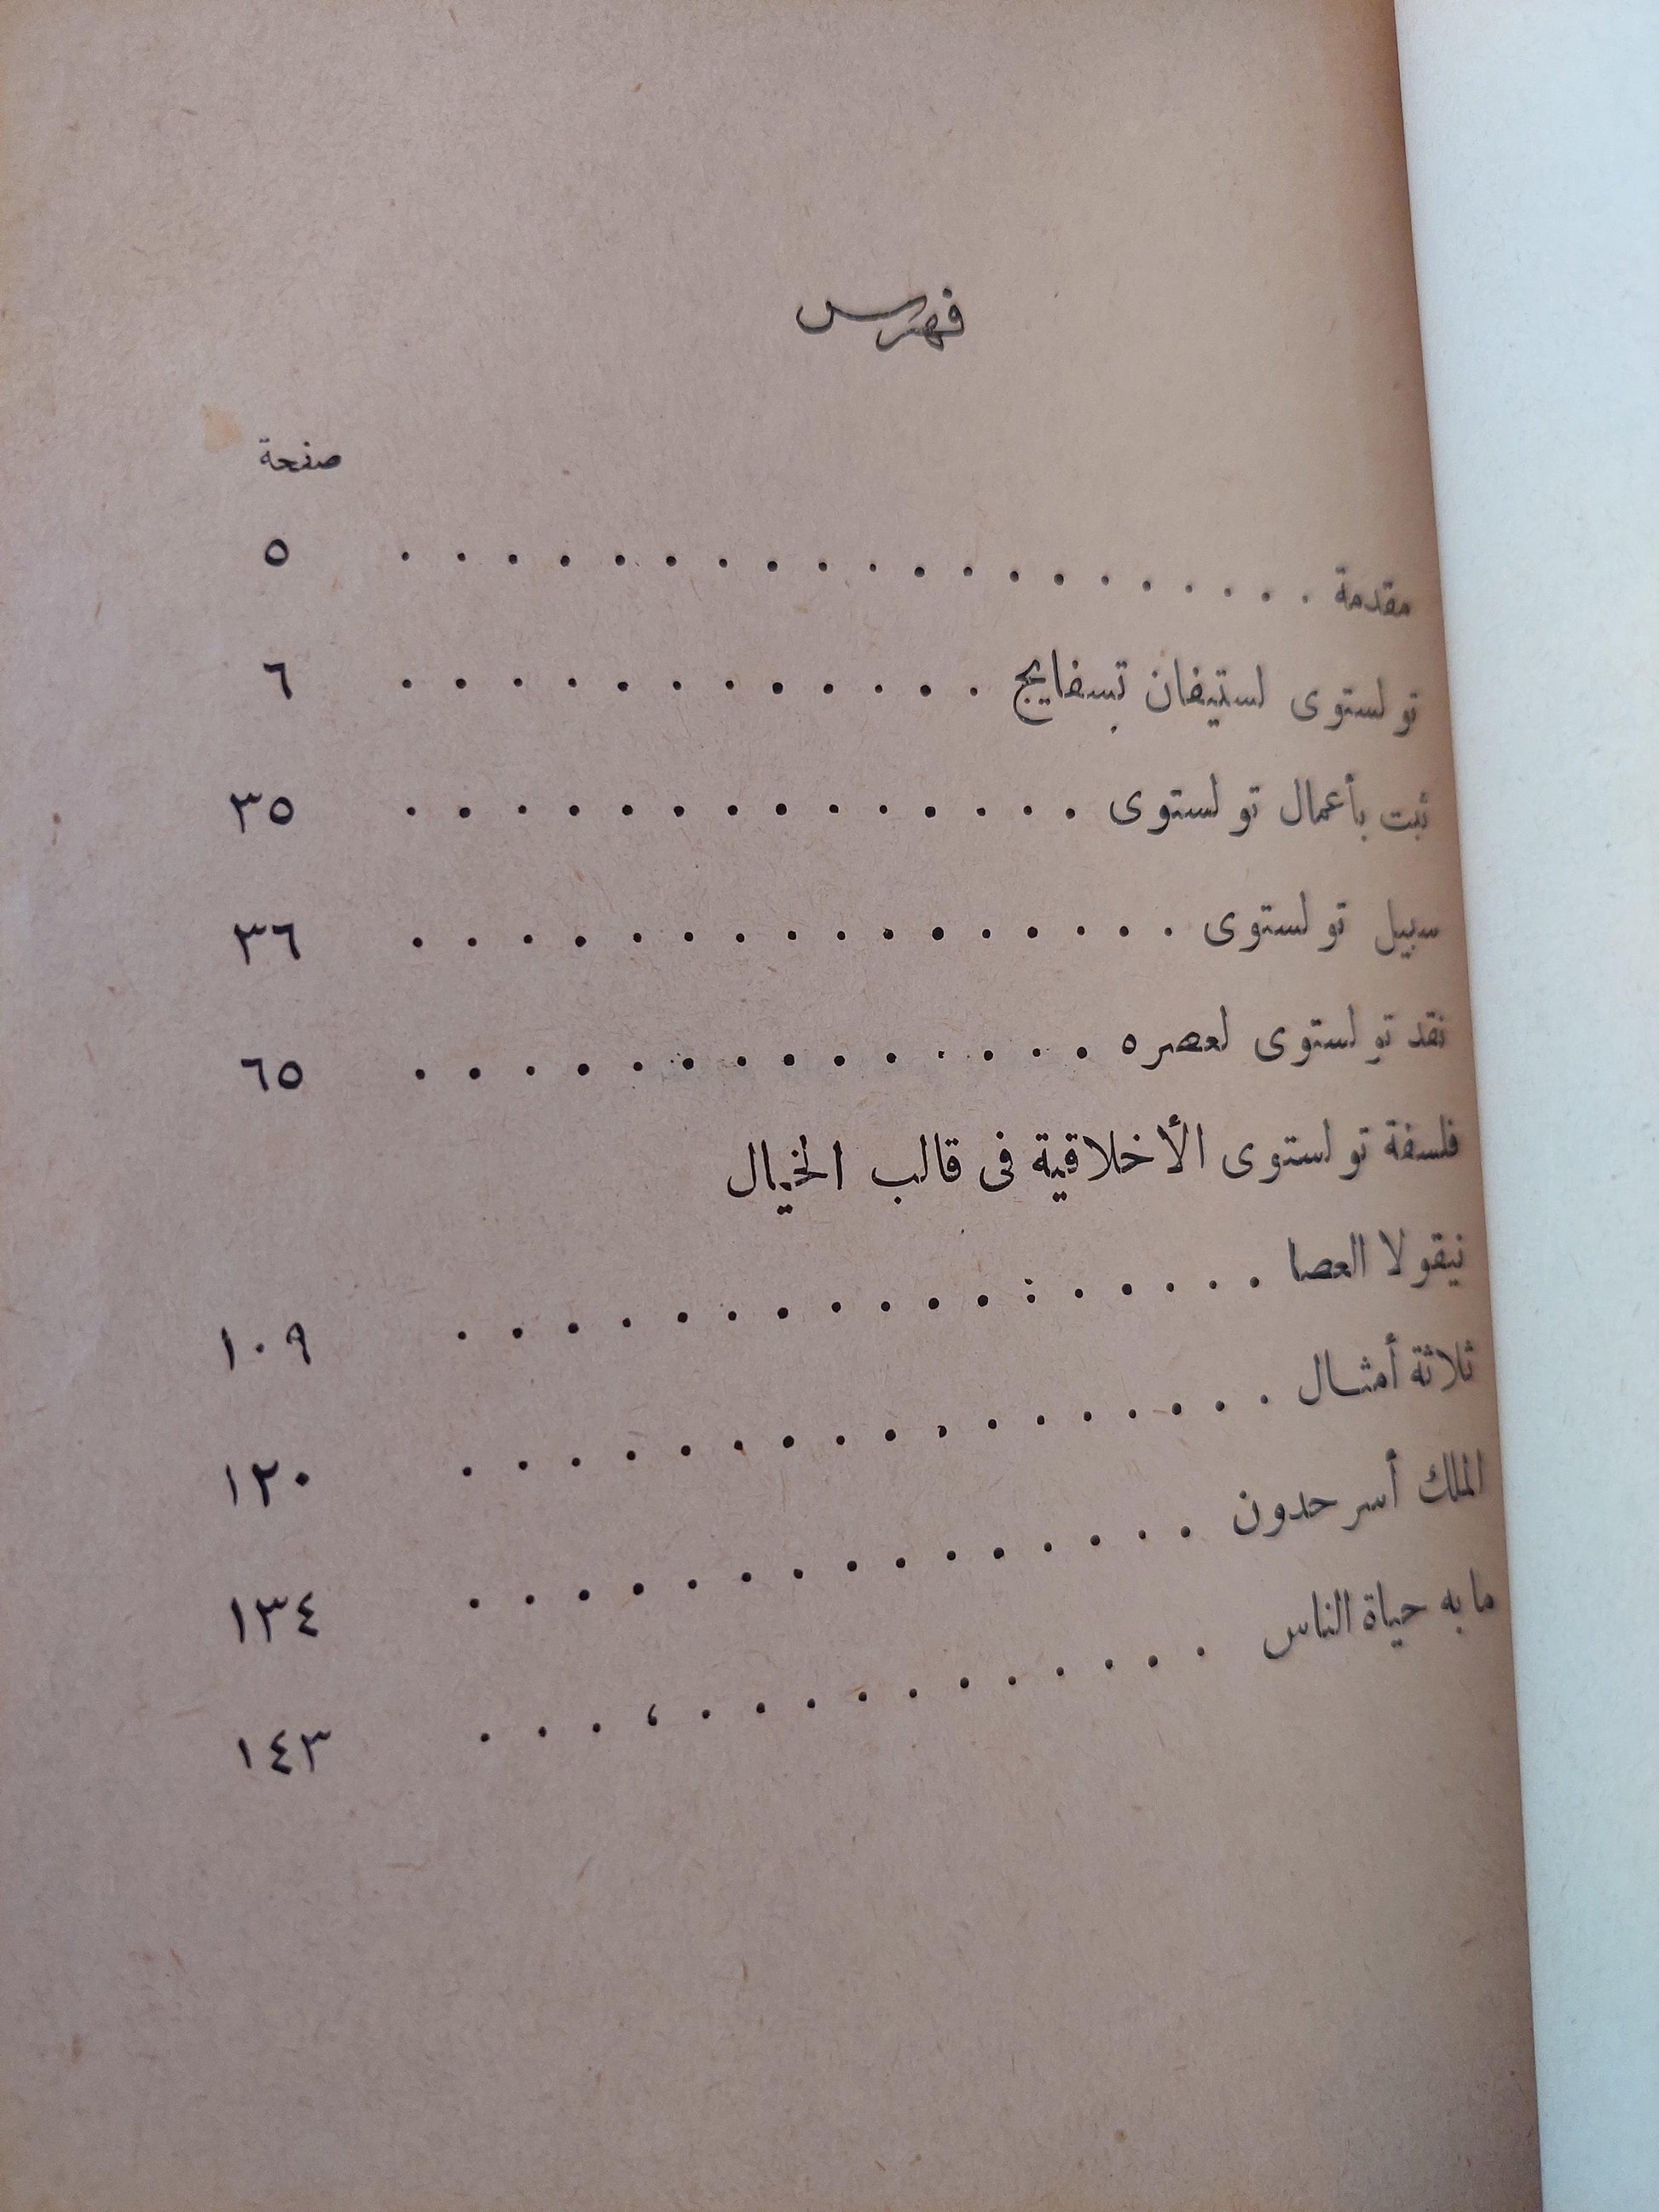 فهرس
صفحة
مقدمة . . . . . . . . . . . . . . . . . . . . ٥
تولستوى لستيفان تسفايج . . . . . . . . . . . . ٦
ثبت بأعمال تولستوى . . . . . . . . . . . . . . ٣٥
سبيل تولستوى . . . . . . . . . . . . . . . . ٣٦
نقد تولستوى لعصره . . . . . . . . . . . . . . ٦٥
فلسفة تولستوى الأخلاقية فى قالب الخيال
نيقولا العصا . . . . . . . . . . . . . . . . . ١٠٩
ثلاثة أمثال . . . . . . . . . . . . . . . . . ١٢٠
الملك أسرحدون . . . . . . . . . . . . . . . ١٣٤
ما به حياة الناس . . . . . . . . . . . . . . . ١٤٣